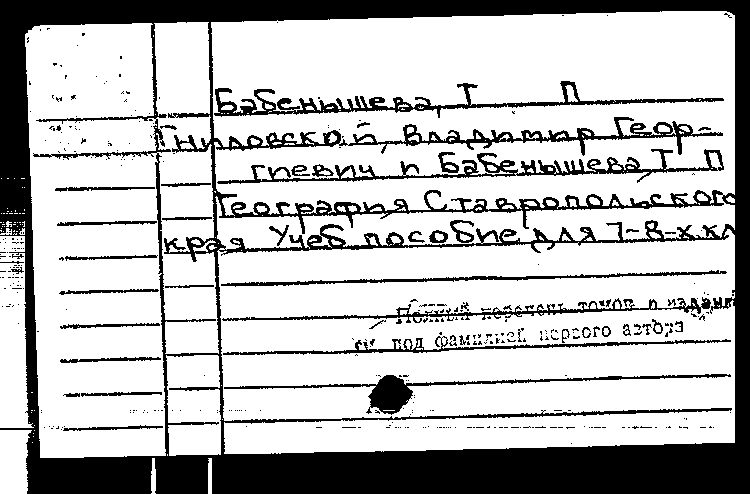 Бабенышева, Т П
Гниловской, Владимир Геор-
гиевич и Бабенышева, Т П
География Ставропольского
края Учеб пособие для 7-8-х кл
Полный перечень томов о издани
см. под фамилией первого автора